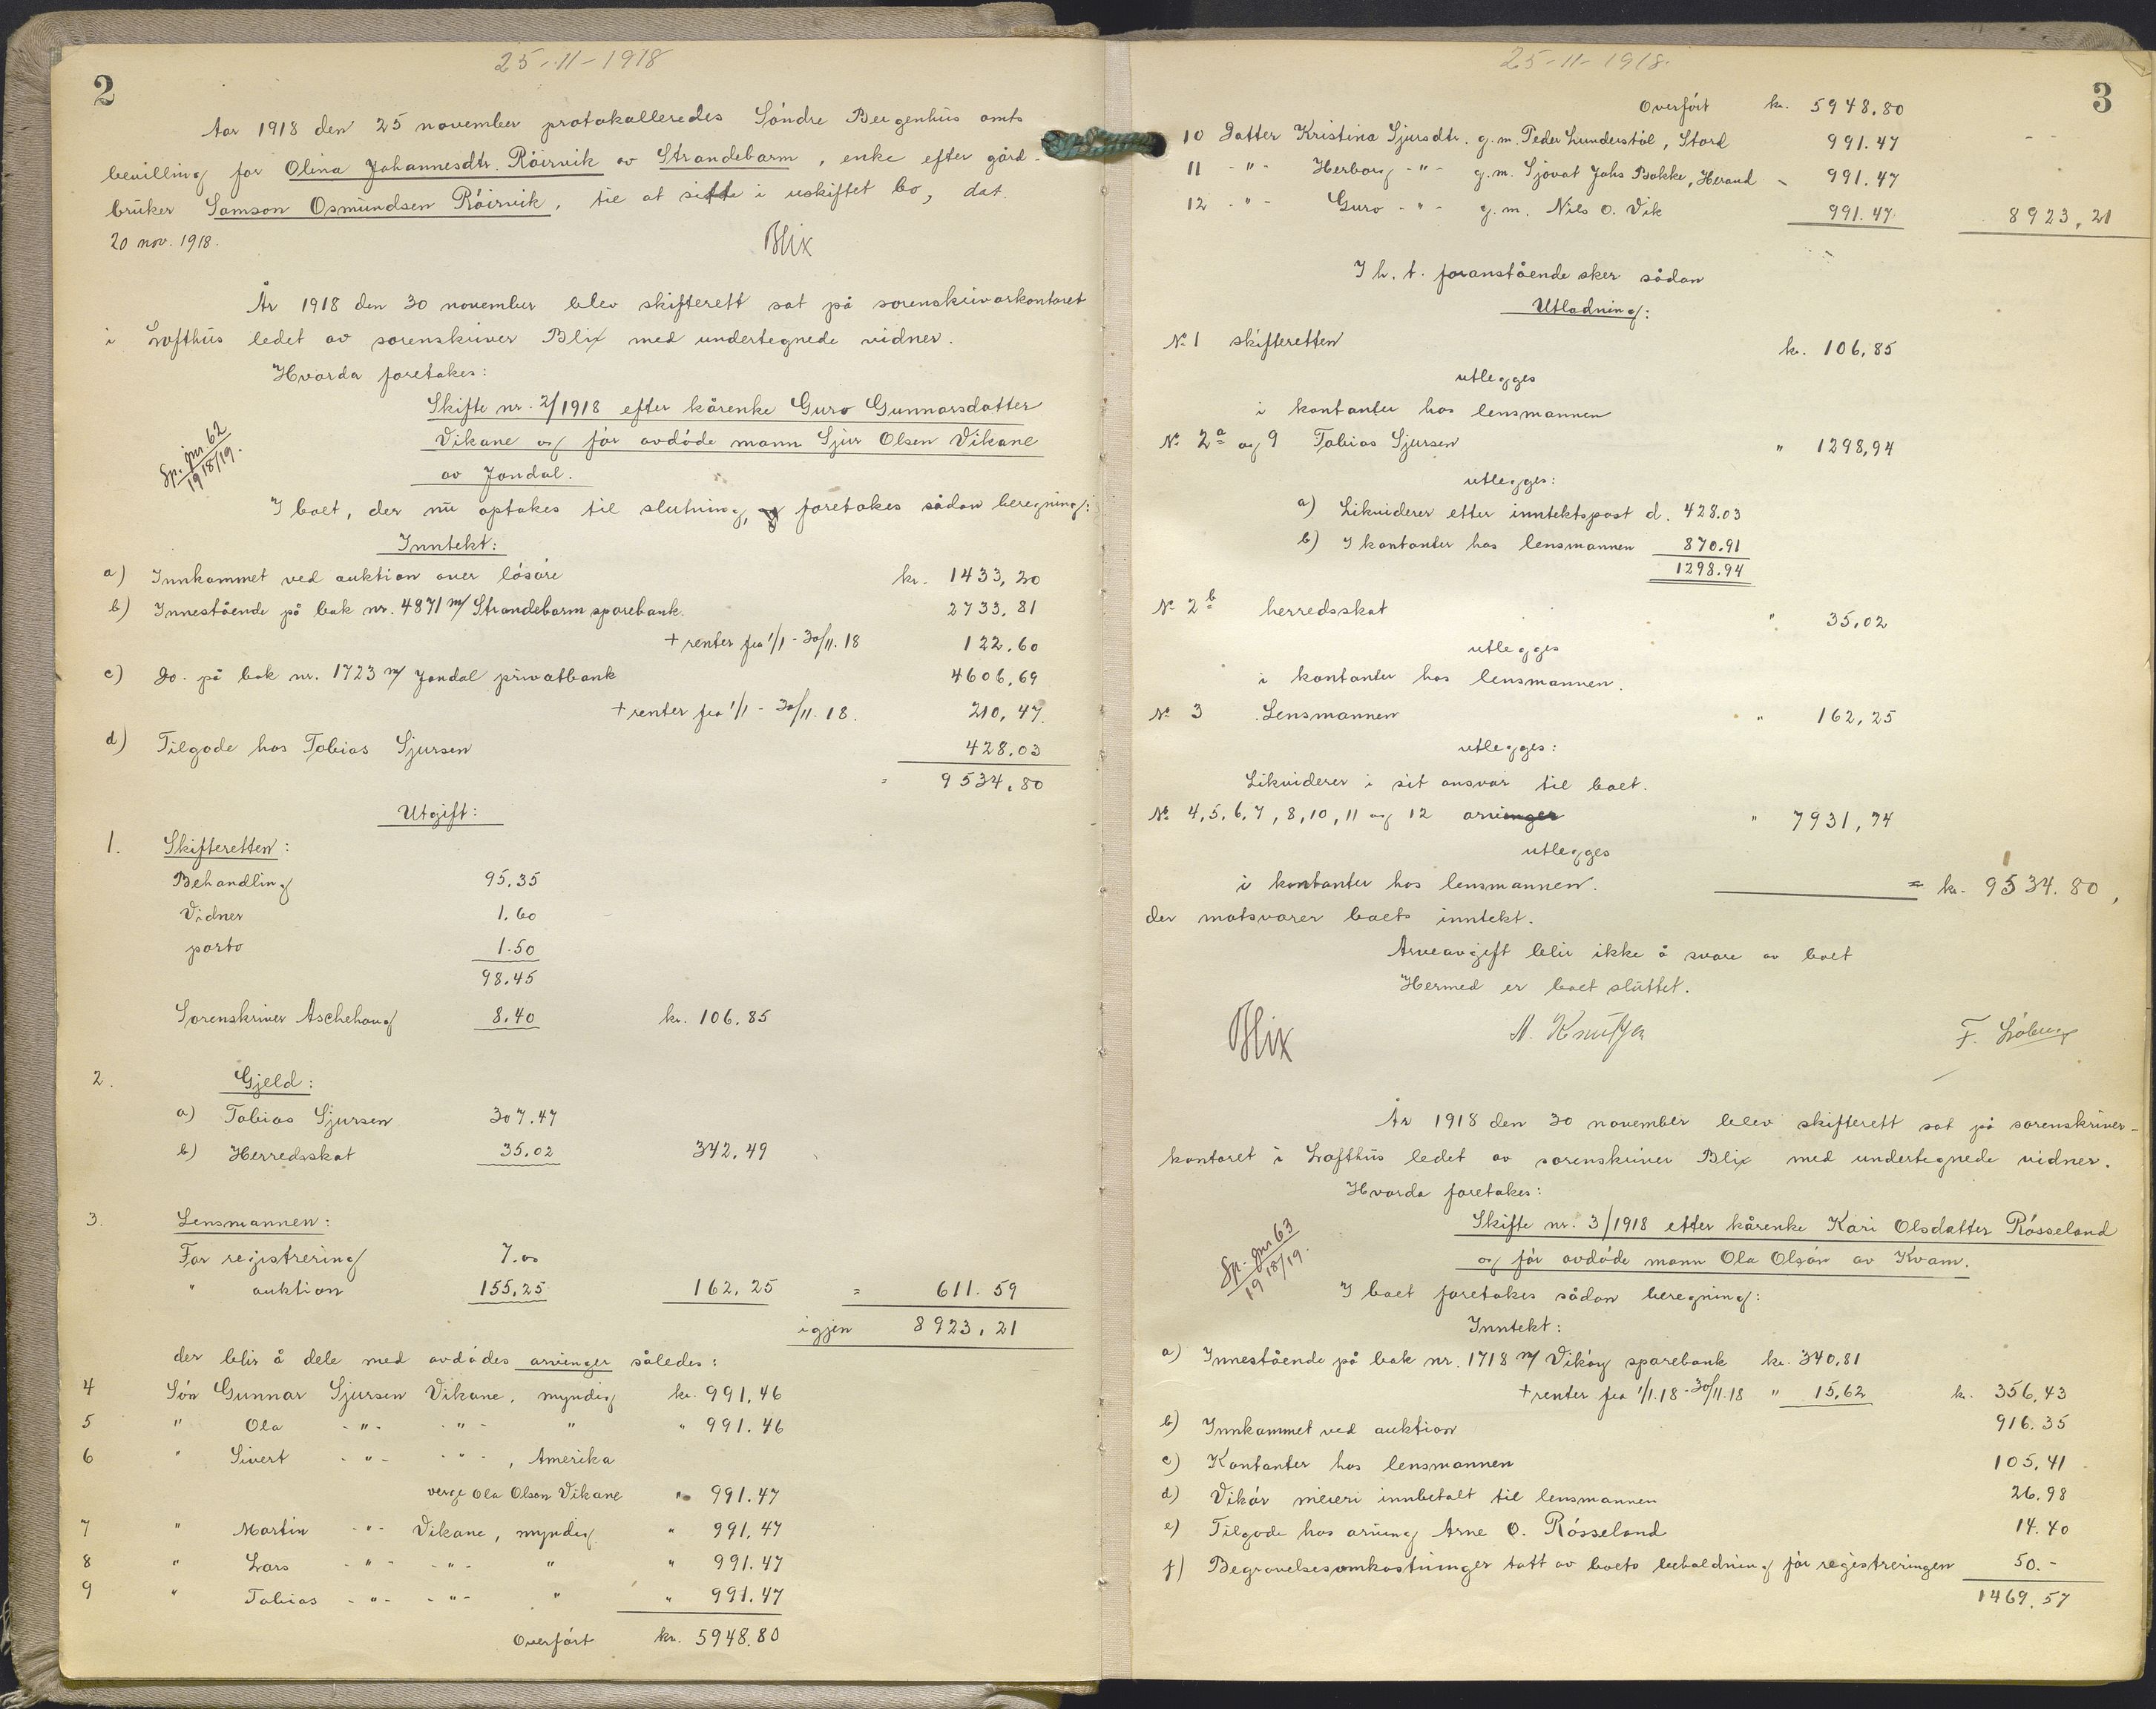 25-11-1918
2
Aar 1918 den 25 november protokolleredes Söndre Bergenhus amts
bevilling for Olina Johannesdtr. Röirvik av Strandebarm, enke efter gård-
bruker Samson Osmundsen Röirvik, til at sitte i uskiftet bo, dat.
20 nov. 1918.
Blix
År 1918 den 30 november blev skifterett sat på sorenskriverkontoret
i Lofthus ledet av sorenskriver Blix med undertegnede vidner.
Hvorda foretakes:
Skifte nr. 2/1918 efter kårenke Guro Gunnarsdatter
Vikane og för avdöde mann Sjur Olsen Vikane
av Jondal.
Sp. jnr 62
1918/19.
I boet, der nu optakes til slutning, foretakes sådan beregning:
Inntekt:
a) Innkommet ved auktion over lösöre kr. 1433,20
b) Innestående på bok nr. 4871 m/ Strandebarm sparebank. 2733,81
+ renter fra 1/1 - 30/11. 18 122.60
c) Do. på bok nr. 1723 m/ Jondal privatbank 4606,69
+ renter fra 1/1 - 30/11. 18. 210,47.
d) Tilgode hos Tobias Sjursen 428.03
= 9534.80
Utgift:
1. Skifteretten:
Behandling 95.35
Vidner 1.60
porto 1.50
98.45
Sorenskriver Aschehoug 8.40 kr. 106.85
2. Gjeld:
a) Tobias Sjursen 307.47
b) Herredsskat 35.02 342.49
3. Lensmannen:
For registrering 7.00
" auktion 155,25 162,25 = 611.59
igjen 8923,21
der blir å dele med avdödes arvinger således:
4 Sön Gunnar Sjursen Vikane, myndig kr. 991,46
5 " Ola -"- -"- " " 991.46
6 " Sivert -"- -"-, Amerika
verge Ola Olson Vikane " 991.47
7 " Martin -"- Vikane, myndig " 991,47
8 " Lars -"- -"- " " 991.47
9 " Tobias -"- -"- " " 991.47
Overfört kr. 5948.80
25-11-1918.
3
Overfört kr. 5948.80
10 Datter Kristina Sjursdtr. g.m. Peder Lunderstöl, Stord 991.47
11 -"- Herborg -"- g.m. Sjovat Johs Bakke, Herand - 991.47
12 -"- Guro -"- g.m. Nils O. Vik 991.47 8923,21
I h. t. foranstående sker sådan
Utlodning:
No 1 skifteretten kr. 106,85
utlegges
i kontanter hos lensmannen
No 2a og 9 Tobias Sjursen " 1298,94
utlegges:
a) Likviderer etter inntektspost d. 428.03
b) I kontanter hos lensmannen 870.91
1298.94
No 2b herredsskat " 35,02
utlegges
i kontanter hos lensmannen.
No 3 Lensmannen " 162,25
utlegges:
Likviderer i sit ansvar til boet.
No 4, 5, 6, 7, 8, 10, 11 og 12 arvinger " 7931,74
utlegges
i kontanter hos lensmannen. = kr. 9534.80,
der motsvarer boets inntekt.
Arveavgift blir ikke å svare av boet
Hermed er boet sluttet.
Blix
F. Löberg
År 1918 den 30 november blev skifterett sat på sorenskriver-
kontoret i Lofthus ledet av sorenskriver Blix med undertegnede vidner.
Hvorda foretakes:
Skifte nr. 3/1918 etter kårenke Kari Olsdatter Rösseland
og för avdöde mann Ola Olsön av Kvam.
Sp. jnr 63
1918/19.
I boet foretakes sådan beregning:
Inntekt:
a) Innestående på bok nr. 1718 m/ Vikör sparebank kr. 340,81
+ renter fra 1/1.18 - 30/11.18 " 15,62 kr. 356,43
b) Innkommet ved auktion 916.35
c) Kontanter hos lensmannen 105,41
d) Vikör meieri innbetalt til lensmannen 26.98
e) Tilgode hos arving Arne O. Rösseland 14.40
f) Begravelsesomkostninger tatt av boets beholdning för registreringen 50.-
1469.57